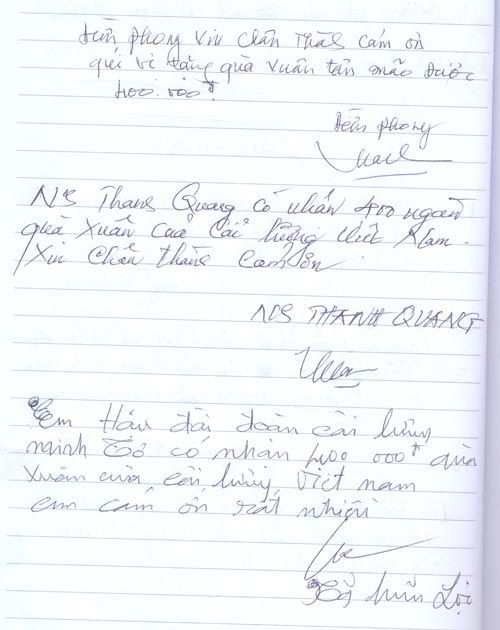 Diễn phong xin chân thành cám ơn
quí vị tặng quà xuân tân mão được
400.000đ
Diễn phong
NS Thanh Quang có nhận 400 ngàn
quà Xuân Của Cải lương Việt Nam.
Xin Chân thành Cám ơn
NS THANH QUANG
Em Hậu đài đoàn cải lương
minh Tơ có nhận 400 000đ quà
Xuân của cải lương Việt nam
em cám ơn rất nhiều
Hữu Lợi